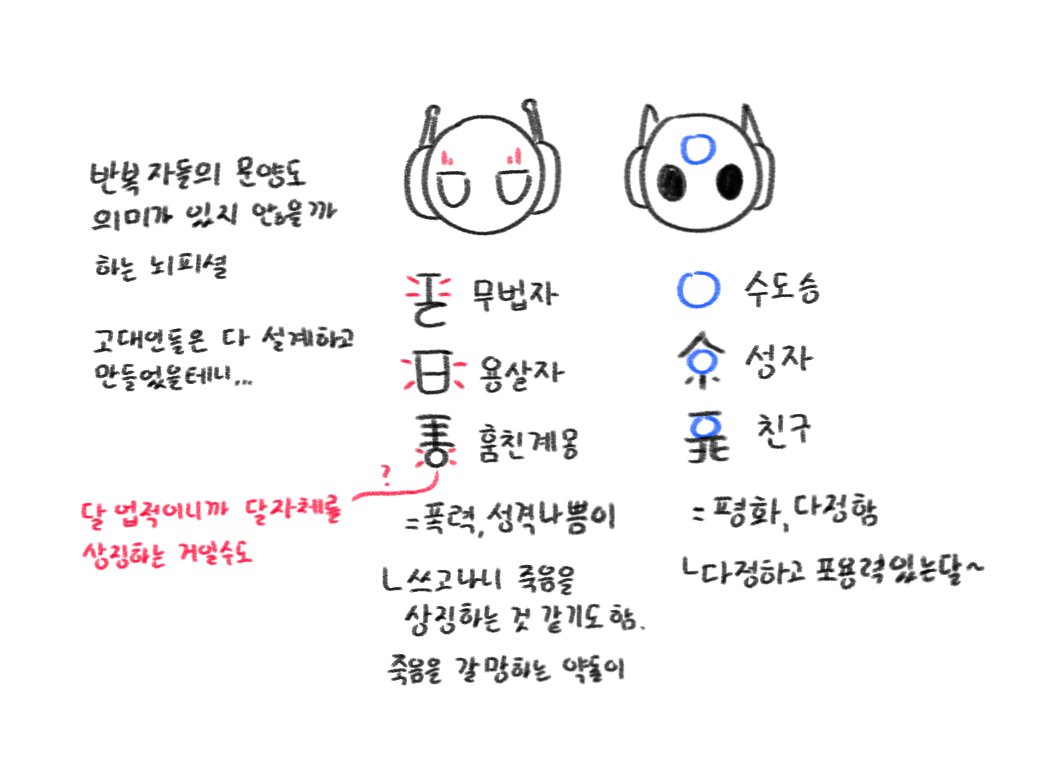 반복자들의 문양도
의미가 있지 않을까
하는 뇌피셜
고대인들은 다 설계하고
만들었을테니...
무법자
용살자
훔친계몽
?
달 업적이니까 달자체를
상징하는 거일수도
=폭력, 성격나쁨이
ㄴ쓰고나니 죽음을
상징하는 것 같기도 함.
죽음을 갈망하는 약돌이
수도승
성자
친구
=평화, 다정함
ㄴ다정하고 포용력있는달~